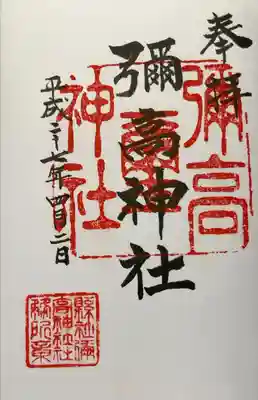 奉拝
彌高神社
彌高
神社
平成二十七年四月二日
縣社彌
高神社社